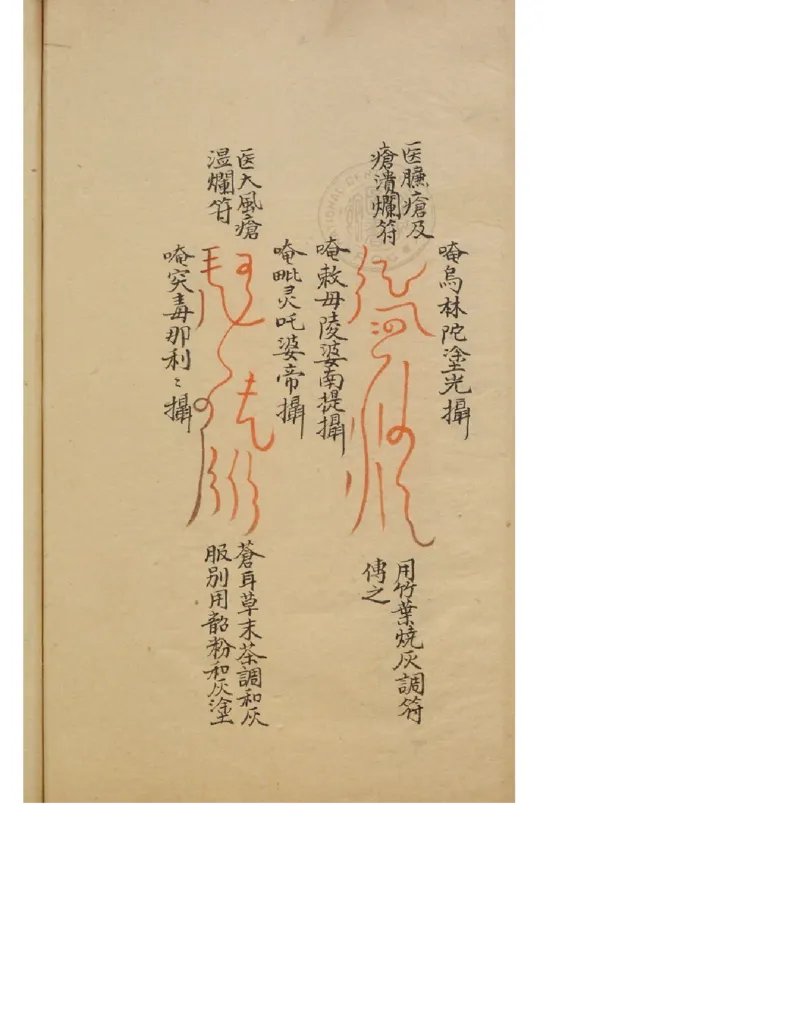 唵烏林陀塗光攝
医臁瘡及
瘡潰爛符
用竹葉燒灰調符
傅之
唵敕母陵婆南提攝
唵毗灵吒婆帝攝
医大風瘡
湿爛符
蒼耳草末茶調和灰
服别用韶粉和灰塗
唵突毒那利〻攝